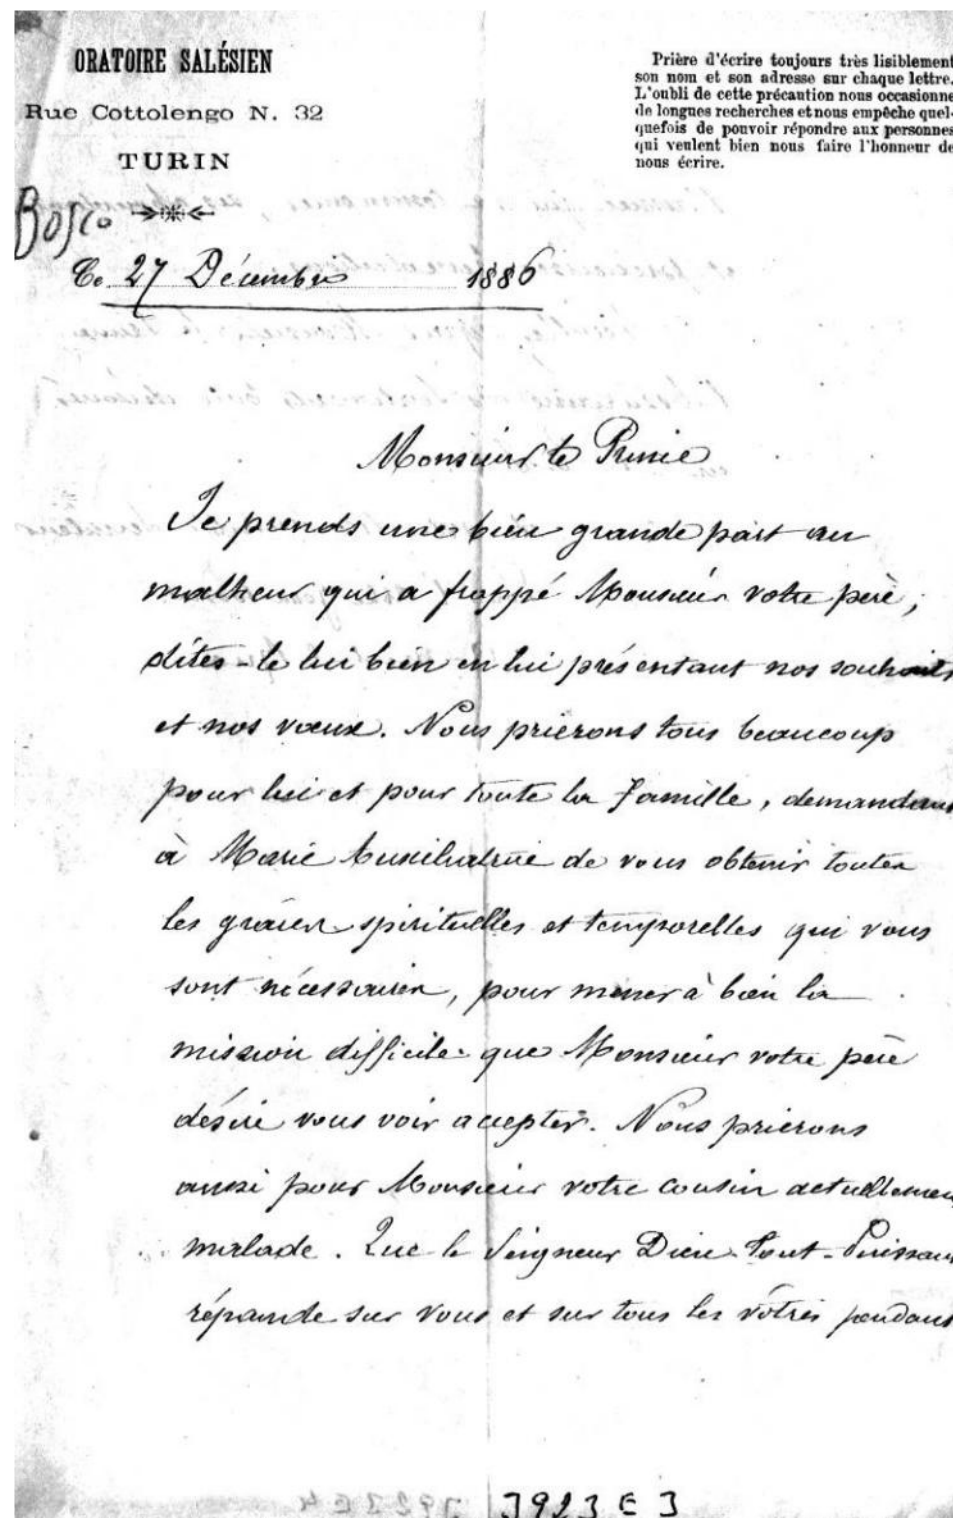 ORATOIRE SALÉSIEN
Rue Cottolengo N. 32
TURIN
Prière d'écrire toujours très lisiblement
son nom et son adresse sur chaque lettre.
L'oubli de cette précaution nous occasionne
de longues recherches et nous empêche quel-
quefois de pouvoir répondre aux personnes
qui veulent bien nous faire l'honneur de
nous écrire.
Bosco
Ce 27 Décembre 1886
Monsieur le Prince
Je prends une bien grande part au
malheur qui a frappé Monsieur votre père;
dites-le lui bien en lui présentant nos souhaits
et nos vœux. Nous prierons tous beaucoup
pour lui et pour toute la famille, demandant
à Marie Auxiliatrice de vous obtenir toutes
les grâces spirituelles et temporelles qui vous
sont nécessaires, pour mener à bien la
mission difficile que Monsieur votre père
désire vous voir accepter. Nous prierons
aussi pour Monsieur votre cousin actuellement
malade. Que le Seigneur Dieu Tout-Puissant
répande sur vous et sur tous les vôtres pendant
3923 E 3